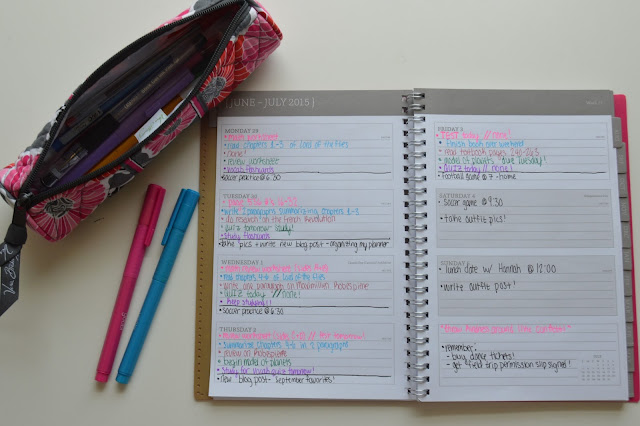 [ JUNE – JULY 2015 ]
MONDAY 29
• math worksheet
• read chapters 1-3 of Lord of the Flies
• none!
• review worksheet
• make flashcards
• soccer practice @ 6:30
TUESDAY 30
• page 345 # 16-32
• write 2 paragraphs summarizing chapters 1-3
• do research on the French Revolution
• quiz tomorrow! study!
• study flashcards
• take pics + write new blog post - organizing my planner
WEDNESDAY 1
• math review worksheet (side one)
• read chapters 4-5 of Lord of the Flies
• write one paragraph on Maximilien Robespierre
• QUIZ today // none!
• keep studying!!
• soccer practice @ 6:30
THURSDAY 2
• review worksheet (side 1-2) // test tomorrow!
• summarize chapters 4-5 in 2 paragraphs
• review on Robespierre
• begin model of planets
• study for vocab quiz tomorrow!
• new blog post - September favorites!
FRIDAY 3
• TEST today // none!
• finish book over weekend
• read textbook pages 240-263
• model of planets - due Tuesday!
• QUIZ today // none!
• football game @ 7 - home
SATURDAY 4
• soccer game @ 9:30
• take outfit pics!
SUNDAY 5
• lunch date w/ Hannah @ 12:00
• write outfit post!
"throw kindness around like confetti!"
• remember:
- buy dance tickets!
- get field trip permission slip signed!